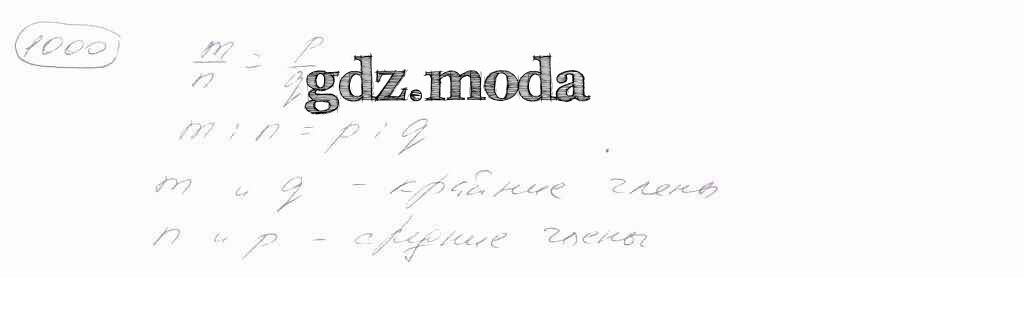 1000
m/n = p/q
gdz.moda
m : n = p : q
m и q - крайние члены
n и p - средние члены